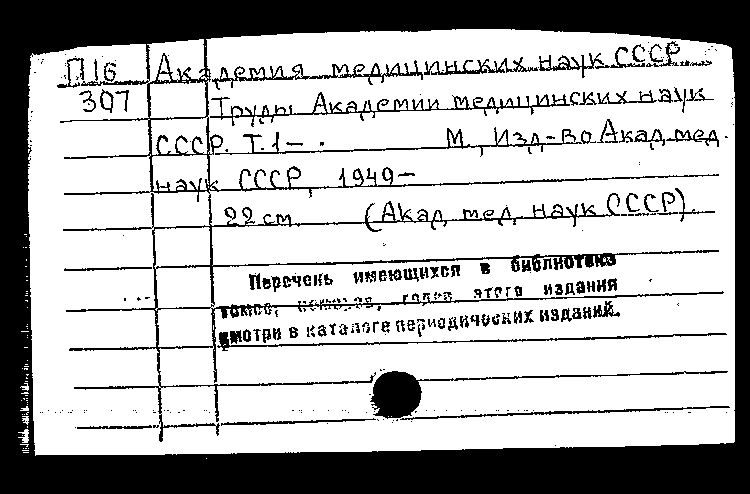 П16 Академия медицинских наук СССР
307 Труды Академии медицинских наук
СССР. Т.1– . М., Изд-во Акад. мед.
наук СССР, 1949–
22 см. (Акад. мед. наук СССР).
Перечень имеющихся в библиотеке
томов, номеров, годов этого издания
смотри в каталоге периодических изданий.